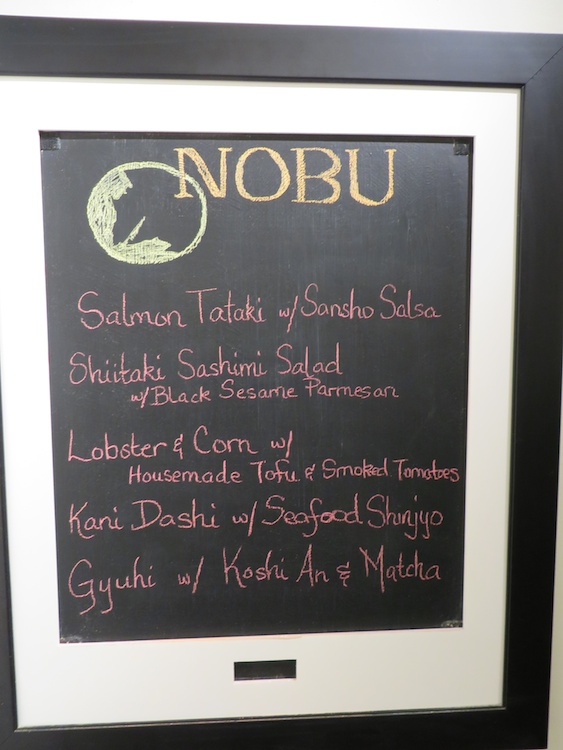 NOBU
Salmon Tataki w/ Sansho Salsa
Shiitaki Sashimi Salad
w/ Black Sesame Parmesan
Lobster & Corn w/
Housemade Tofu & Smoked Tomatoes
Kani Dashi w/ Seafood Shinjyo
Gyuhi w/ Koshi An & Matcha